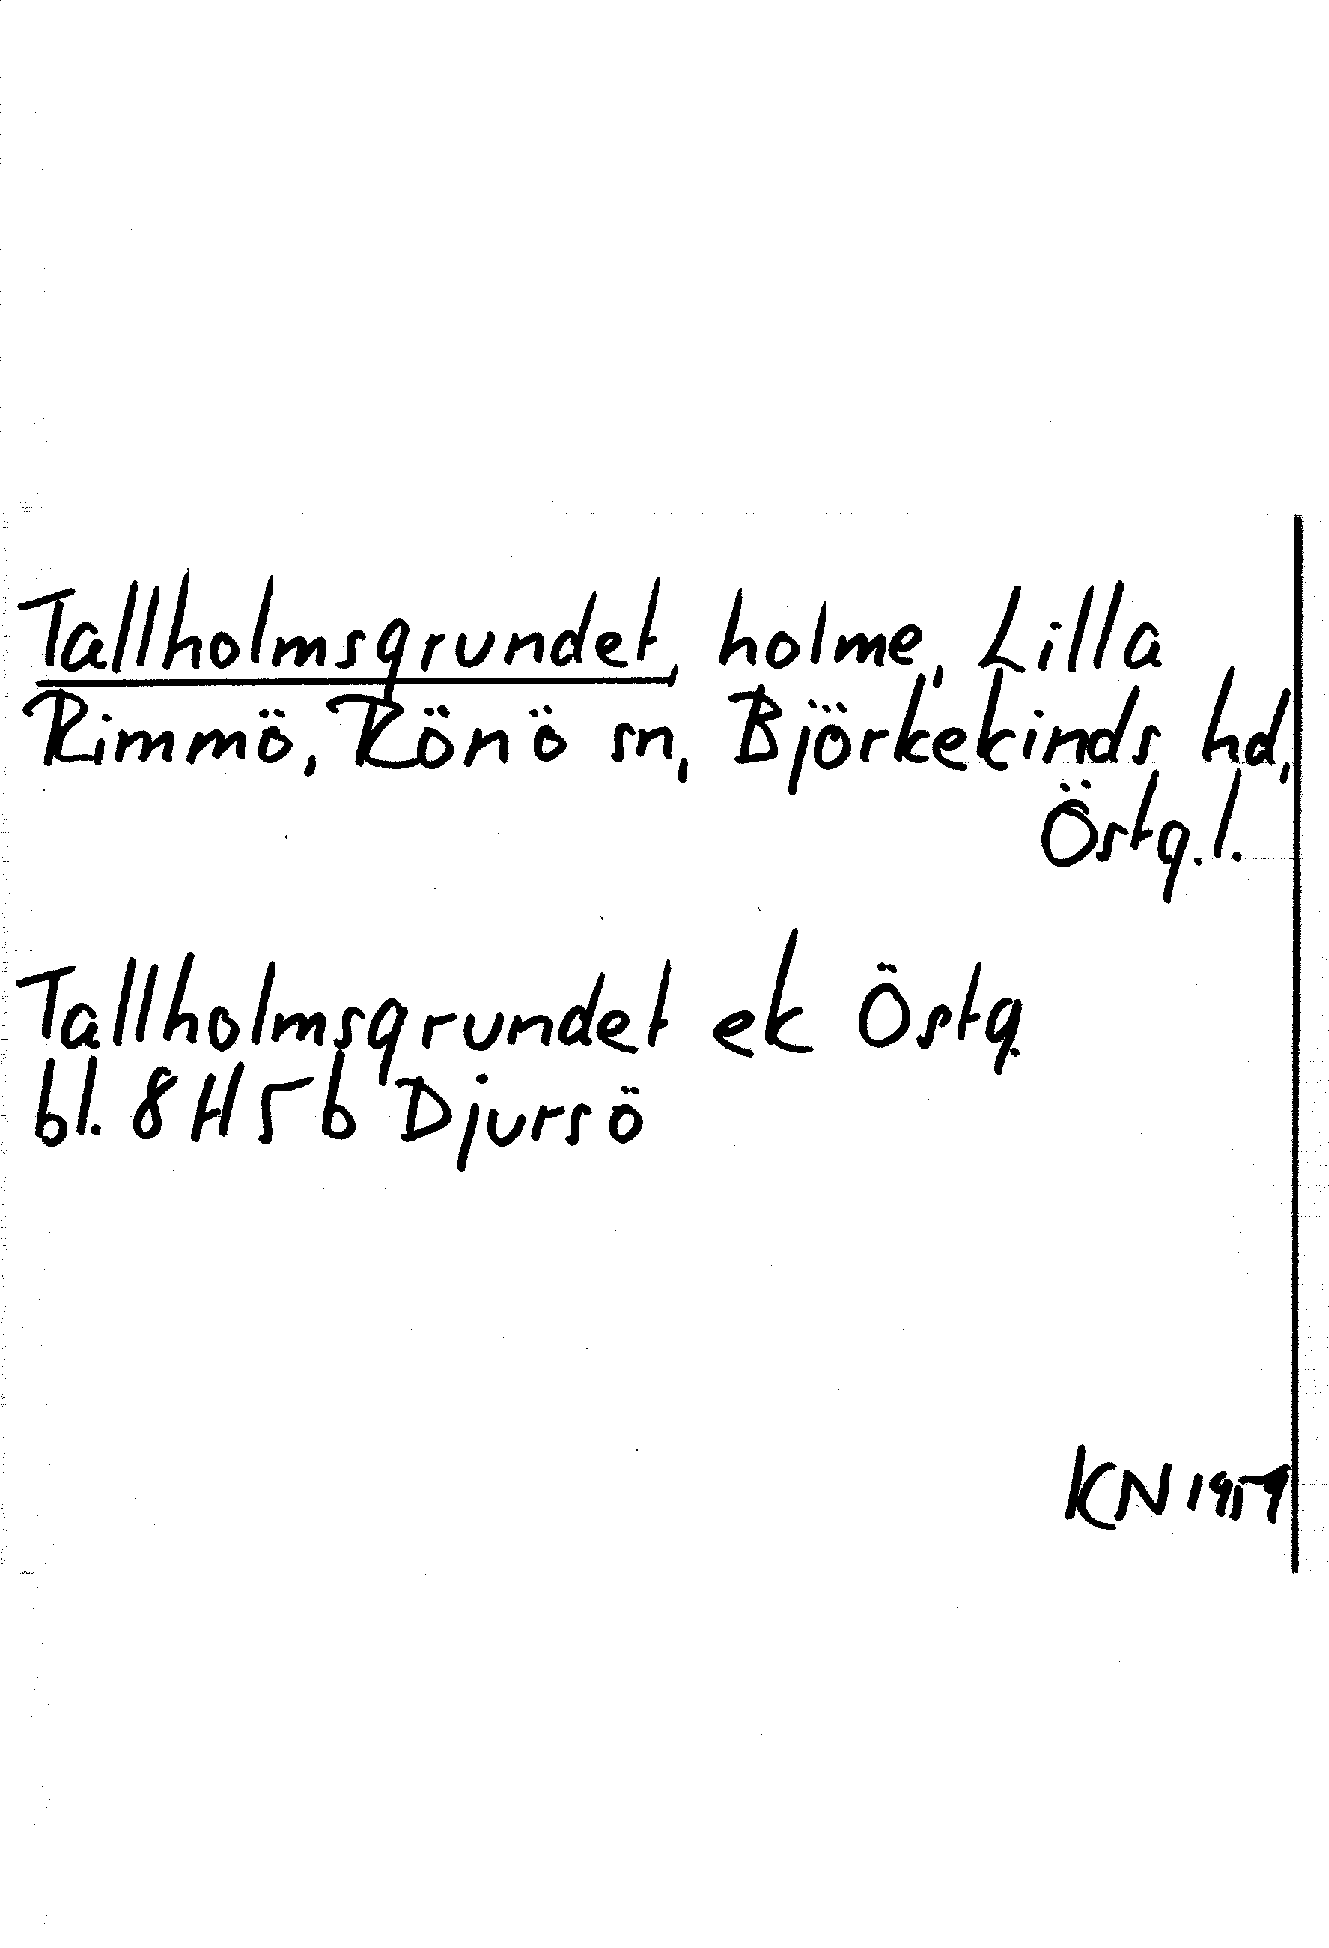 Tallholmsgrundet, holme, Lilla
Rimmö, Rönö sn, Björkekinds hd,
Östg. l.
Tallholmsgrundet ek Östg
bl. 8 H 5 b Djursö
KN 1959